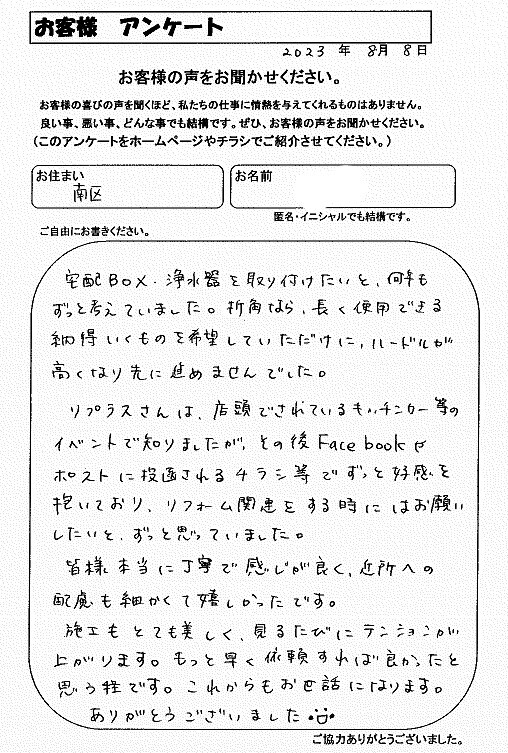 お客様 アンケート
2023 年 8月 8日
お客様の声をお聞かせください。
お客様の喜びの声を聞くほど、私たちの仕事に情熱を与えてくれるものはありません。
良い事、悪い事、どんな事でも結構です。ぜひ、お客様の声をお聞かせください。
(このアンケートをホームページやチラシでご紹介させてください。)
お住まい
南区
お名前
匿名・イニシャルでも結構です。
ご自由にお書きください。
宅配BOX・浄水器を取り付けたいと、何年も
ずっと考えていました。折角なら、長く使用できる
納得いくものを希望していただけに、ハードルが
高くなり先に進めませんでした。
リプラスさんは、店頭でされているキッチンカー等の
イベントで知りましたが、その後Facebookや
ポストに投函されるチラシ等でずっと好感を
抱いており、リフォーム関連をする時にはお願い
したいと、ずっと思っていました。
皆様本当に丁寧で感じが良く、近所への
配慮も細かくて嬉しかったです。
施工もとても美しく、見るたびにテンションが
上がります。もっと早く依頼すれば良かったと
思う程です。これからもお世話になります。
ありがとうございました
ご協力ありがとうございました。